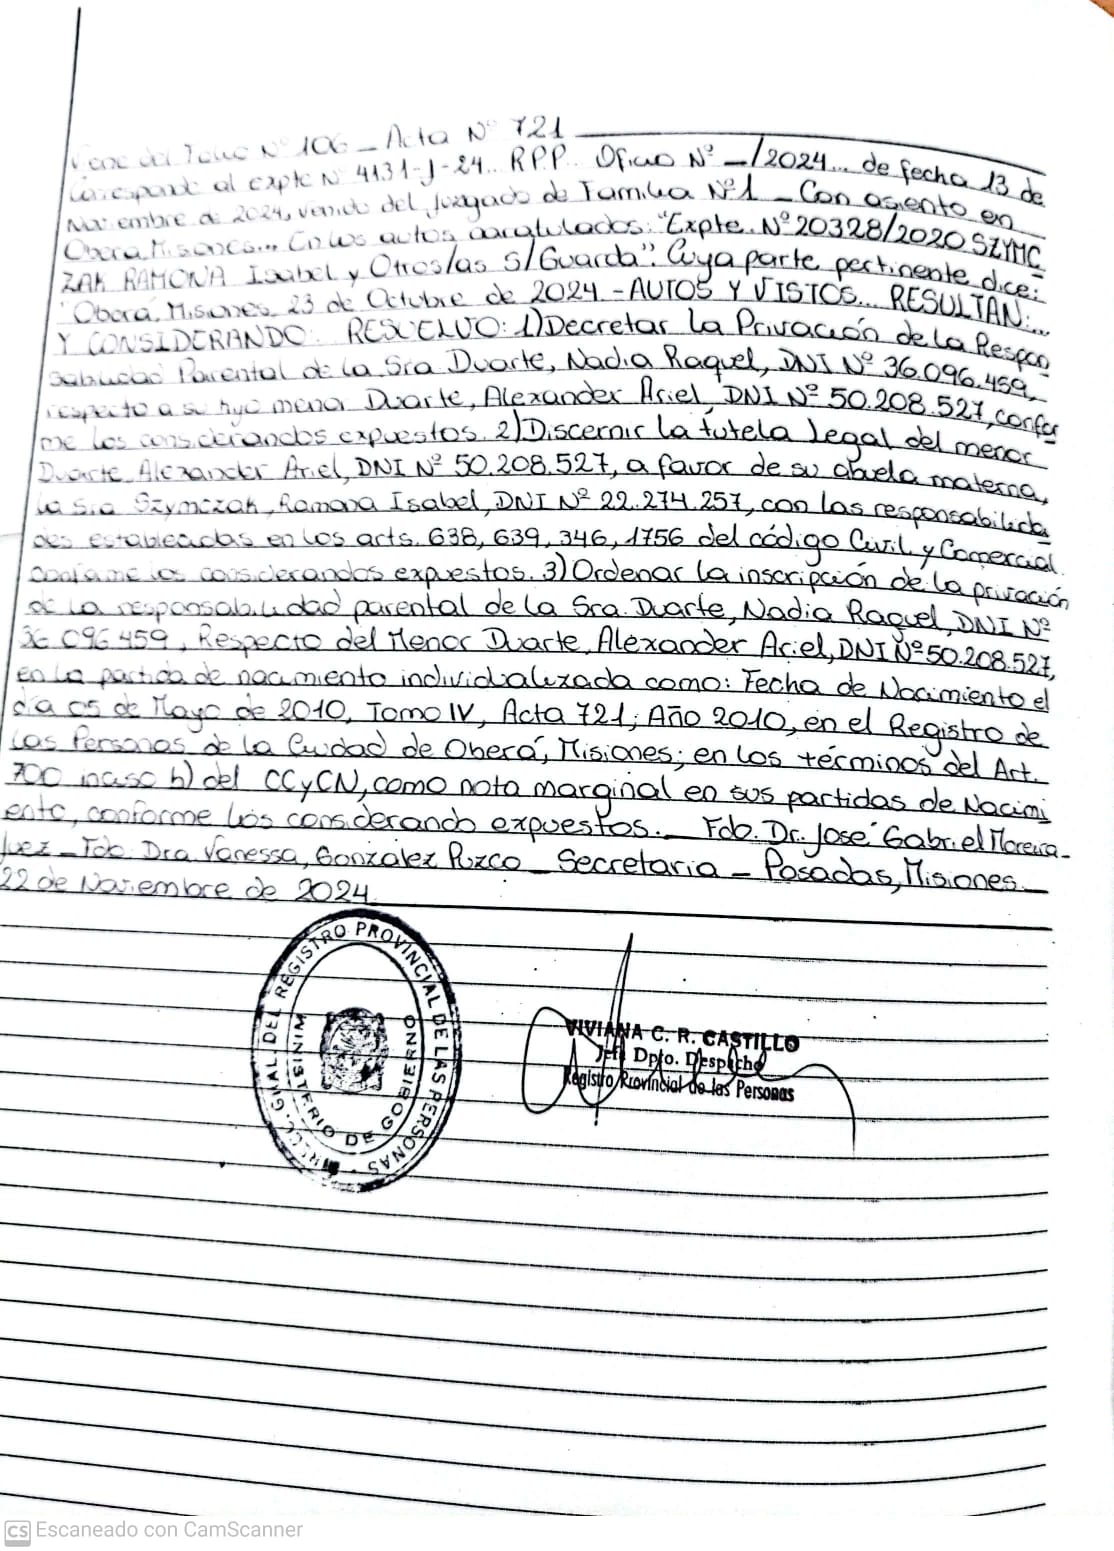 Viene del Folio Nº 106 - Acta Nº 721
Corresponde al expte Nº 4131-J-24... R.P.P. Oficio Nº -/2024... de fecha 13 de
Noviembre de 2024, venido del Juzgado de Familia Nº1 - Con asiento en
Oberá, Misiones... En los autos caratulados: "Expte. Nº 20328/2020 SZYMC
ZAK RAMONA Isabel y Otros/as S/Guarda". Cuya parte pertinente dice:
"Oberá, Misiones, 23 de Octubre de 2024 - AUTOS Y VISTOS... RESULTAN:...
Y CONSIDERANDO: RESUELVO: 1) Decretar la Privación de la Respon
sabilidad Parental de la Sra Duarte, Nadia Raquel, DNI Nº 36.096.459,
respecto a su hijo menor Duarte, Alexander Ariel, DNI Nº 50.208.527, confor
me los considerandos expuestos. 2) Discernir la tutela legal del menor
Duarte Alexander Ariel, DNI Nº 50.208.527, a favor de su abuela materna,
la Sra Szymczak, Ramona Isabel, DNI Nº 22.274.257, con las responsabilida
des establecidas en los arts. 638, 639, 346, 1756 del código Civil y Comercial
conforme los considerandos expuestos. 3) Ordenar la inscripción de la privación
de la responsabilidad parental de la Sra. Duarte, Nadia Raquel, DNI Nº
36.096.459, Respecto del Menor Duarte, Alexander Ariel, DNI Nº 50.208.527,
en la partida de nacimiento individualizada como: Fecha de Nacimiento el
día 05 de Mayo de 2010, Tomo IV, Acta 721, Año 2010, en el Registro de
las Personas de la Ciudad de Oberá, Misiones; en los términos del Art.
700 inciso b) del CCyCN, como nota marginal en sus partidas de Nacimi
ento, conforme los considerando expuestos. - Fdo. Dr. José Gabriel Moreira -
Juez - Fdo. Dra. Vanessa, Gonzalez Puzco - Secretaria - Posadas, Misiones
22 de Noviembre de 2024.
GRAL. DEL REGISTRO PROVINCIAL DE LAS PERSONAS
MINISTERIO DE GOBIERNO
VIVIANA C. R. CASTILLO
Jefa Dpto. Despacho
Registro Provincial de las Personas
CS Escaneado con CamScanner